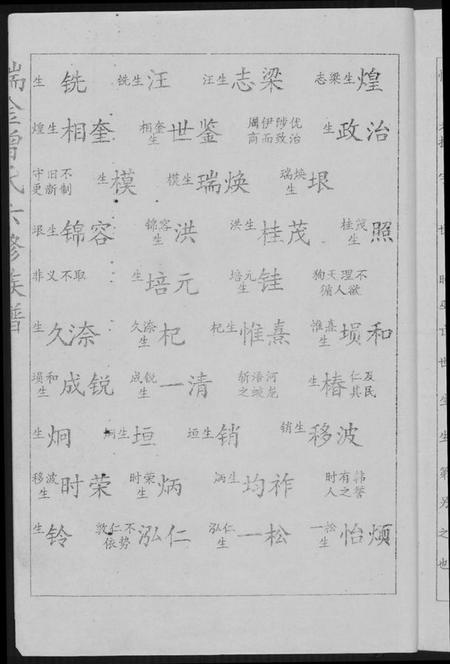 瑞金曾氏六修族谱
生铣 铣生汪 汪生志梁 志梁生煌
煌生相奎 相奎生世鉴 周伊陟优商而致治 生政治
守旧不更新制 生模 模生瑞焕 瑞焕生垠
垠生锦容 锦容生洪 洪生桂茂 桂茂生照
非义不取 生培元 培元生铓 狥天理不循人欲
生久渿 久渿生杞 杞生惟熹 惟熹生埙和
埙和生成锐 成锐生一清 斩浯河之蛟龙 生椿 仁及其民
生炯 炯生垣 垣生销 销生移波
移波生时荣 时荣生炳 炳生均祚 时有韩人之誉
生铃 敦仁不依势 泓仁 泓仁生一松 一松生怡烦